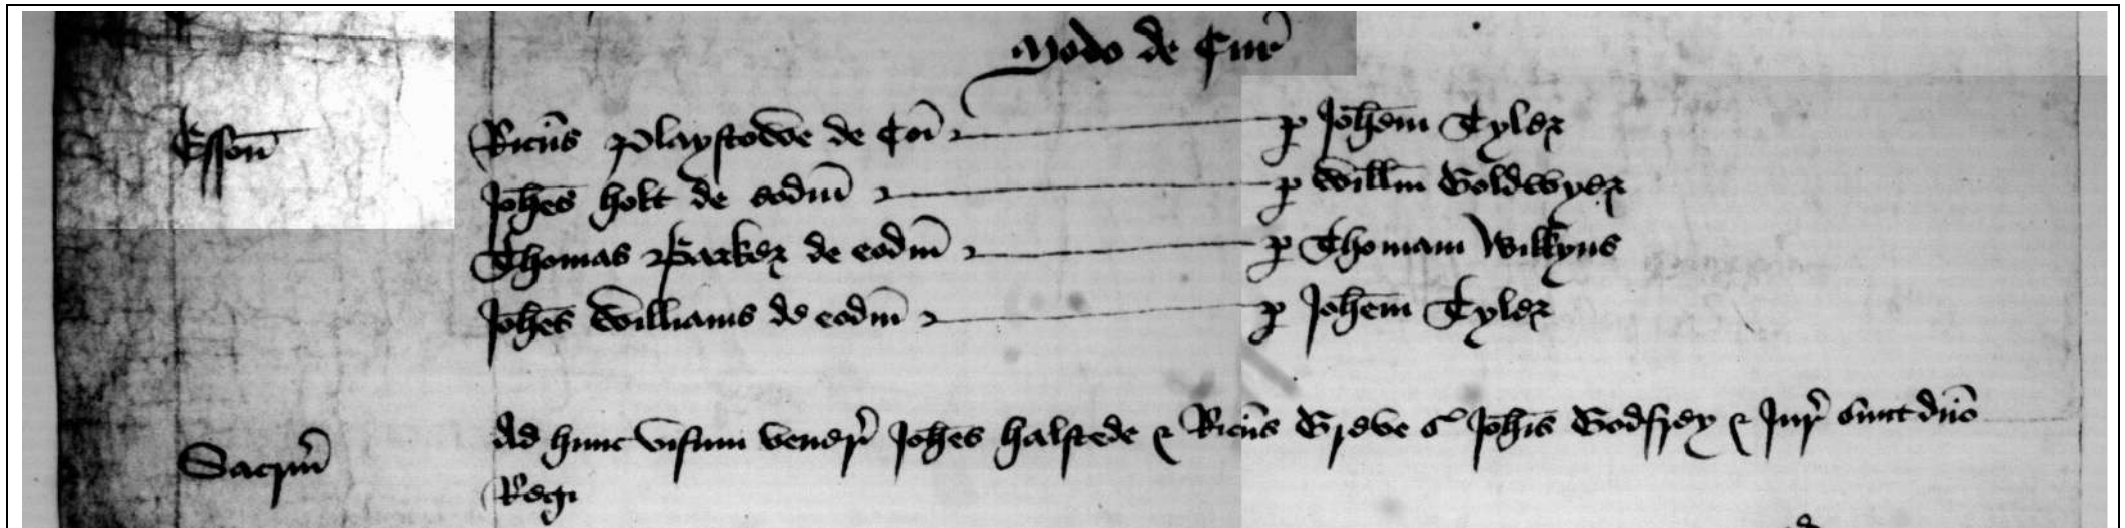 Modo de Cur̄
Esson̄
Ric̄us Playstowe de Cōi p Joh̄em Tyler
Joh̄es holt de eodm̄ p Will̄m Goldwyer
Thomas Parker de eodm̄ p Thomam Wilkyns
Joh̄es Williams de eodm̄ p Joh̄em Tyler
Sacr̄m Ad hunc visum vener̄ Joh̄es halstede & Ric̄us Greve s̄ Joh̄is Godfrey & Jur̄ sunt dn̄o
Regi